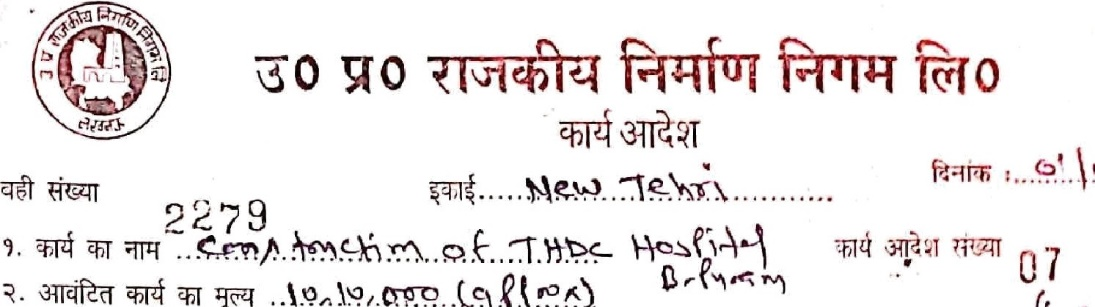 उ प्र राजकीय निर्माण निगम लि
लखनऊ
उ0 प्र0 राजकीय निर्माण निगम लि0
कार्य आदेश
दिनांक :
वही संख्या 2279 इकाई.....New Tehri
१. कार्य का नाम Construction of THDC Hospital कार्य आदेश संख्या 07
B-Puram
२. आवंटित कार्य का मूल्य ..10,10,000 (approx)